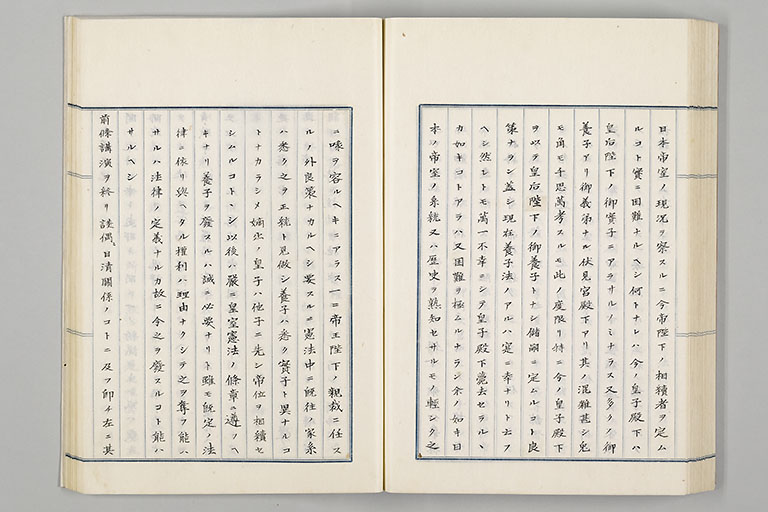 日本帝室ノ現況ヲ察スルニ今帝陛下ノ相續者ヲ定ム
ルコト實ニ困難ナルヘシ何トナレハ今ノ皇子殿下ハ
皇后陛下ノ御實子ニアラサルノミナラス又多クノ御
養子アリ御義弟ナル伏見宮殿下アリ其ノ混雜甚シ兎
モ角モ千思萬考スルモ此ノ度限リ特ニ今ノ皇子殿下
ヲ以テ皇后陛下ノ御養子トナシ儲嗣ニ定ムルコト良
策ナラン蓋シ現在養子法ノアルハ寔ニ幸ナリト云フ
ヘシ然レトモ萬一不幸ニシテ皇子殿下薨去セラルヽ
カ如キコトアラハ又困難ヲ極ムルナラン余ノ如キ日
本ノ帝室ノ系統又ハ歴史ヲ熟知セサルモノ輕シク之
ニ喙ヲ容ルヘキニアラス一ニ帝王陛下ノ親裁ニ任ス
ルノ外良策ナカルヘシ要スルニ憲法中ニ既往ノ家系
ハ悉ク之ヲ正統ト見做シ養子ハ悉ク實子ト異ナルコ
トナカラシメ嫡出ノ皇子ハ他子ニ先シ帝位ヲ相續セ
シムルコトヽシ以後ハ嚴ニ皇室憲法ノ條章ニ遵フヘ
キナリ養子ヲ發スルハ誠ニ必要ナリト雖モ既定ノ法
律ニ依リ與ヘタル權利ハ理由ナクシテ之ヲ奪フ能ハ
サルハ法律ノ定義ナルカ故ニ今之ヲ發スルコト能ハ
サルヘシ
前條講演ヲ終リ談偶日清關係ノコトニ及フ卽チ左ニ其